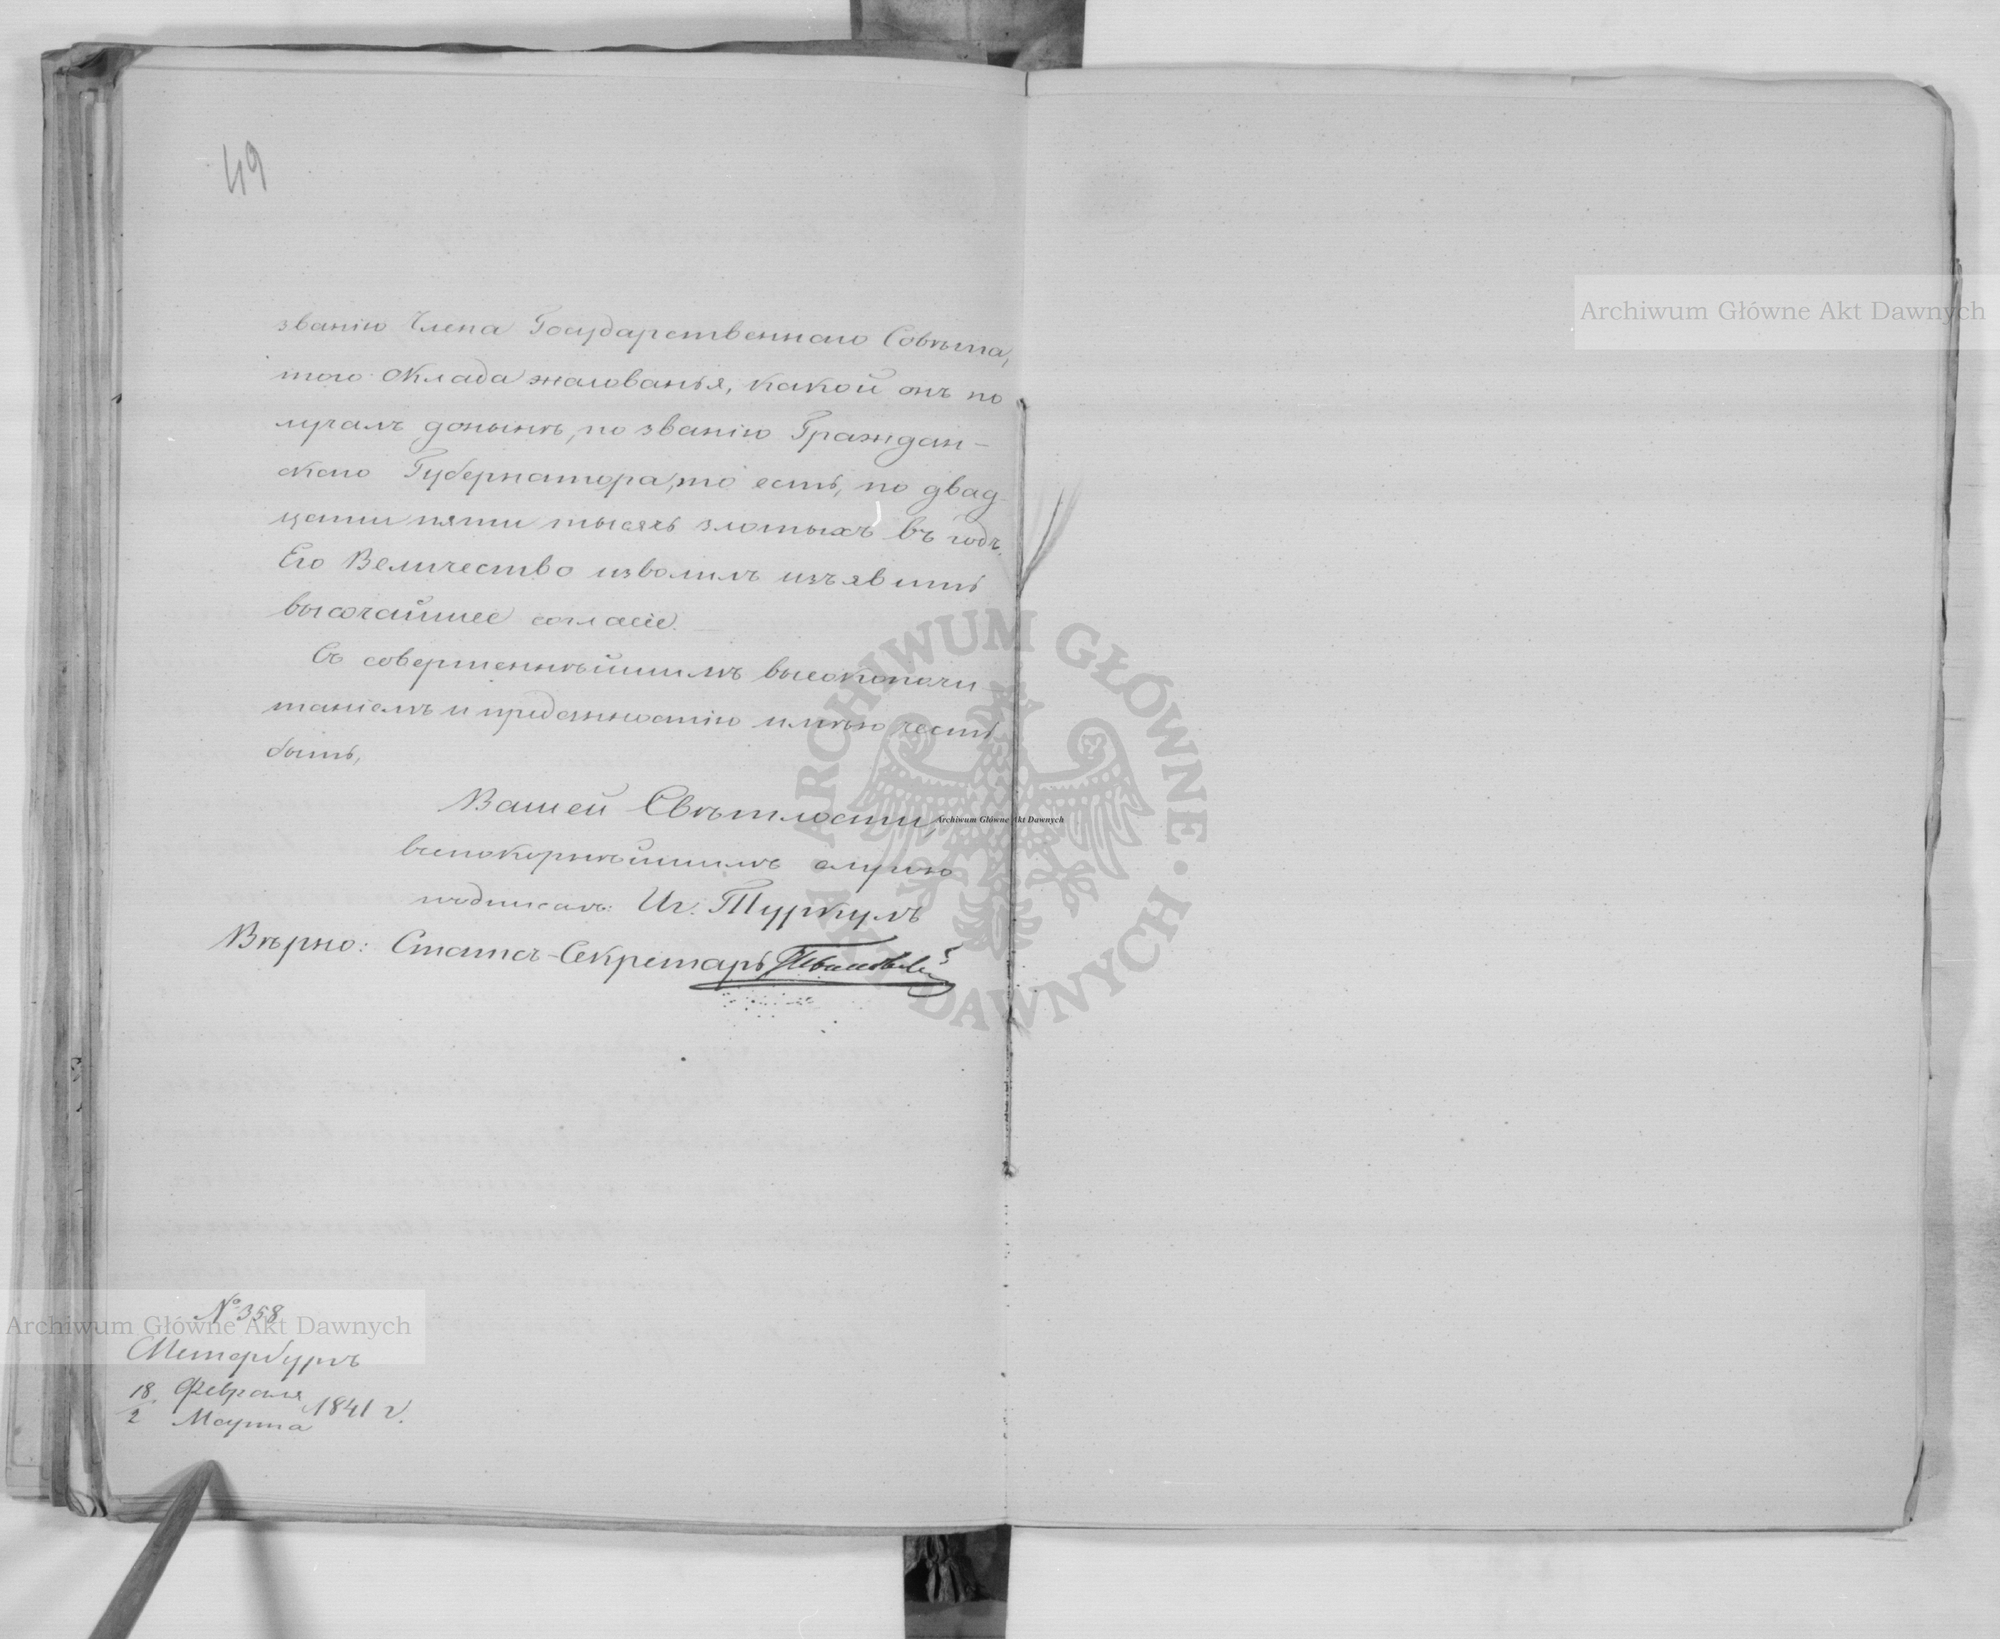 49
званію Члена Государственнаго Совѣта,
того оклада жалованья, какой онъ по
лучалъ донынѣ, по званію Граждан-
скаго Губернатора, то есть, по двад
цати пяти тысячъ злотыхъ въ годъ.
Его Величество изволилъ изъявить
высочайшее согласіе. —
Съ совершеннѣйшимъ высокопочи
таніемъ и преданностію имѣю честь
быть,
Вашей Свѣтлости,
всепокорнѣйшимъ слугою
подписалъ: Иг. Туркулъ
Вѣрно: Статсъ-Секретарь
№ 358
СПетербургъ
18 Февраля
2 Марта 1841 г.
Archiwum Główne Akt Dawnych
Archiwum Główne Akt Dawnych
Archiwum Główne Akt Dawnych
ARCHIWUM GŁÓWNE AKT DAWNYCH